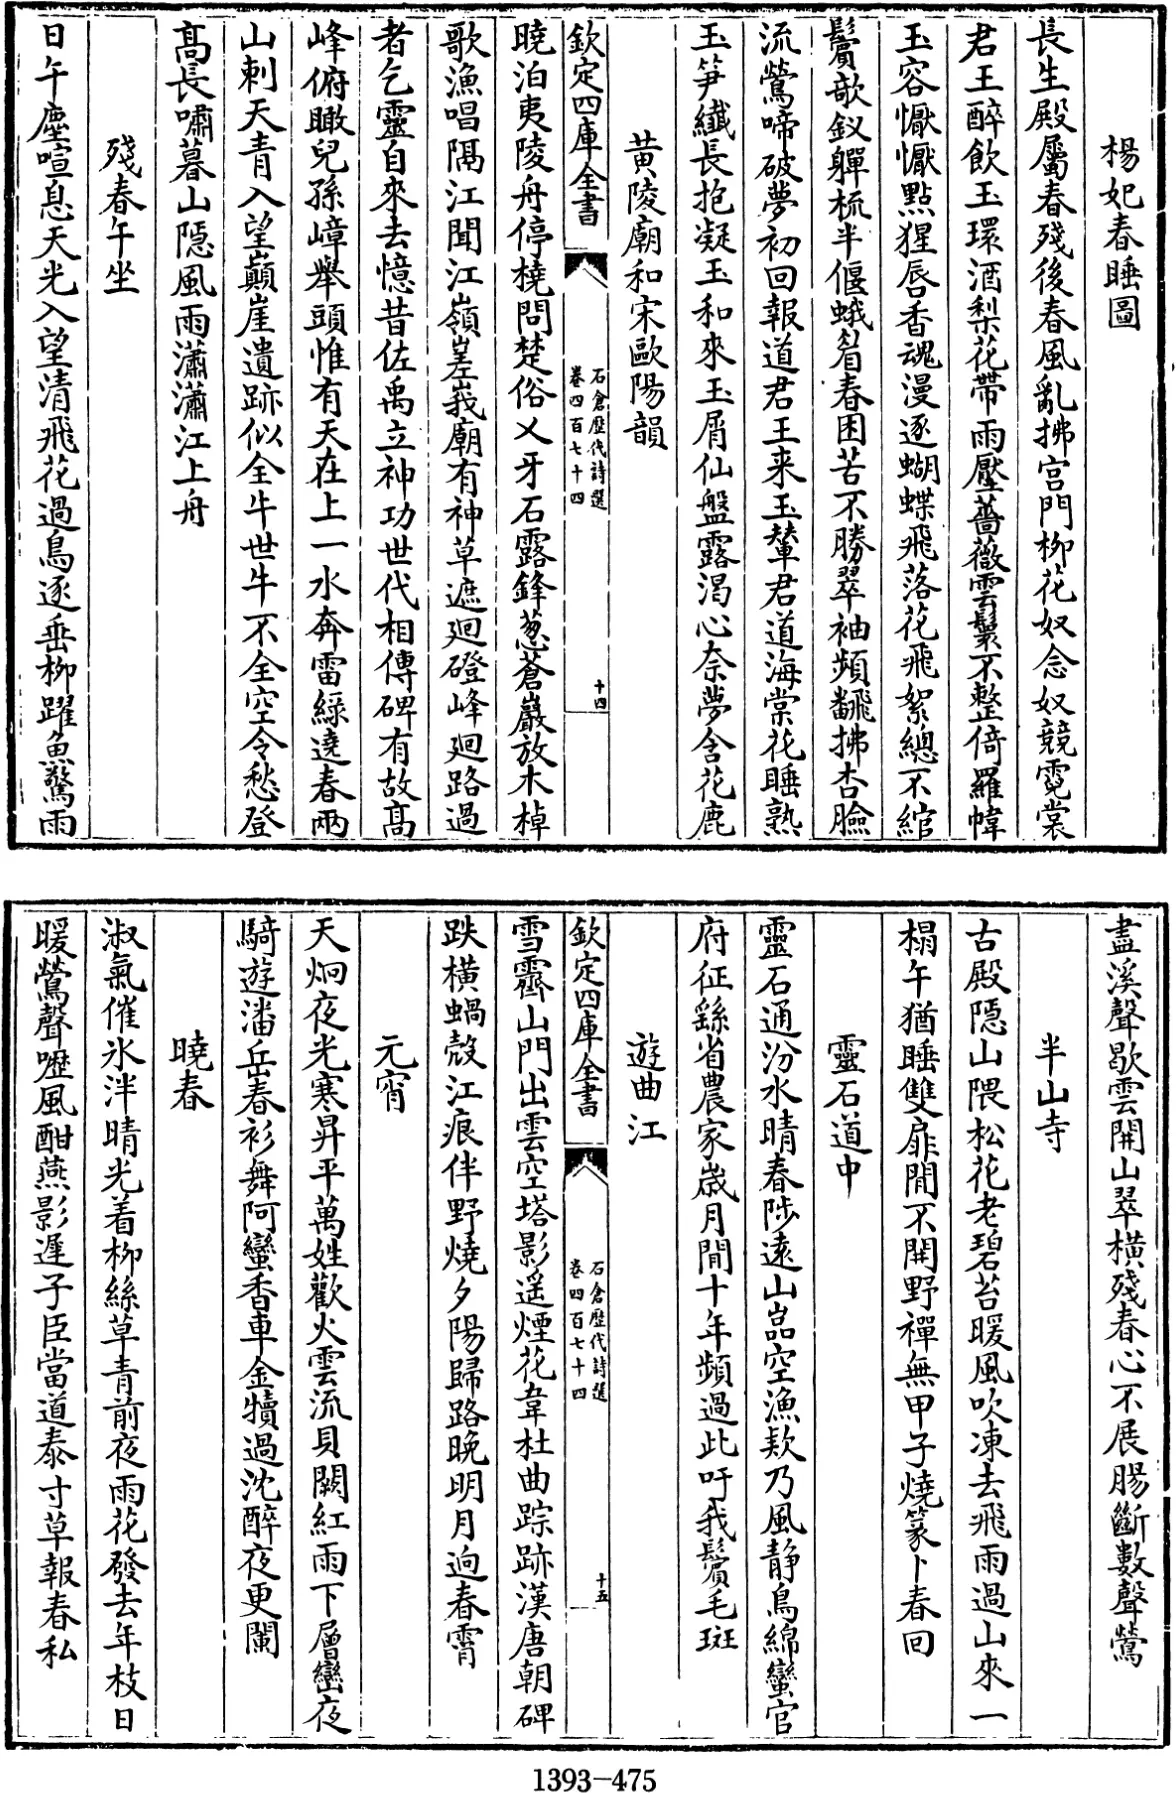 楊妃春睡圖
長生殿屬春殘後春風亂拂宮門柳花奴念奴競霓裳
君王醉飲玉環酒梨花帶雨壓薔薇雲鬟不整倚羅幃
玉容懨懨點猩唇香魂漫逐蝴蝶飛落花飛絮總不綰
鬢欹釵嚲梳半偃蛾眉春困苦不勝翠袖頻翻拂杏臉
流鶯啼破夢初回報道君王来玉輦君道海棠花睡熟
玉笋纖長抱凝玉和來玉屑仙盤露渴心奈夢含花鹿
黄陵廟和宋歐陽韻
欽定四庫全書
石倉歷代詩選
卷四百七十四
十四
曉泊夷陵舟停橈問楚俗乂牙石露鋒葱蒼巖放木棹
歌漁唱隔江聞江嶺差峩廟有神草遮廻磴峰廻路過
者乞靈自來去憶昔佐禹立神功世代相傳碑有故髙
峰俯瞰兒孫嶂舉頭惟有天在上一水奔雷綠遶春兩
山刺天青入望巔崖遺跡似全牛世牛不全空令愁登
髙長嘯暮山隠風雨瀟瀟江上舟
殘春午坐
日午塵喧息天光入望清飛花過鳥逐垂柳躍魚驚雨
盡溪聲歇雲開山翠橫殘春心不展腸斷數聲鶯
半山寺
古殿隠山隈松花老碧苔暖風吹凍去飛雨過山來一
榻午猶睡雙扉閒不開野禪無甲子燒篆卜春回
靈石道中
靈石通汾水晴春陟遠山嵓空漁欵乃風静鳥綿蠻官
府征繇省農家嵗月閒十年頻過此吁我鬢毛斑
遊曲江
欽定四庫全書
石倉歷代詩選
卷四百七十四
十五
雪霽山門出雲空塔影遥煙花韋杜曲踪跡漢唐朝碑
跌橫蝸殻江痕伴野燒夕陽歸路晚明月逈春霄
元宵
天炯夜光寒昇平萬姓歡火雲流貝闕紅雨下層巒夜
騎遊潘岳春衫舞阿蠻香車金犢過沈醉夜更闌
曉春
淑氣催氷泮晴光着柳絲草青前夜雨花發去年枝日
暖鶯聲嚦風酣燕影遲子臣當道泰寸草報春私
1393-475